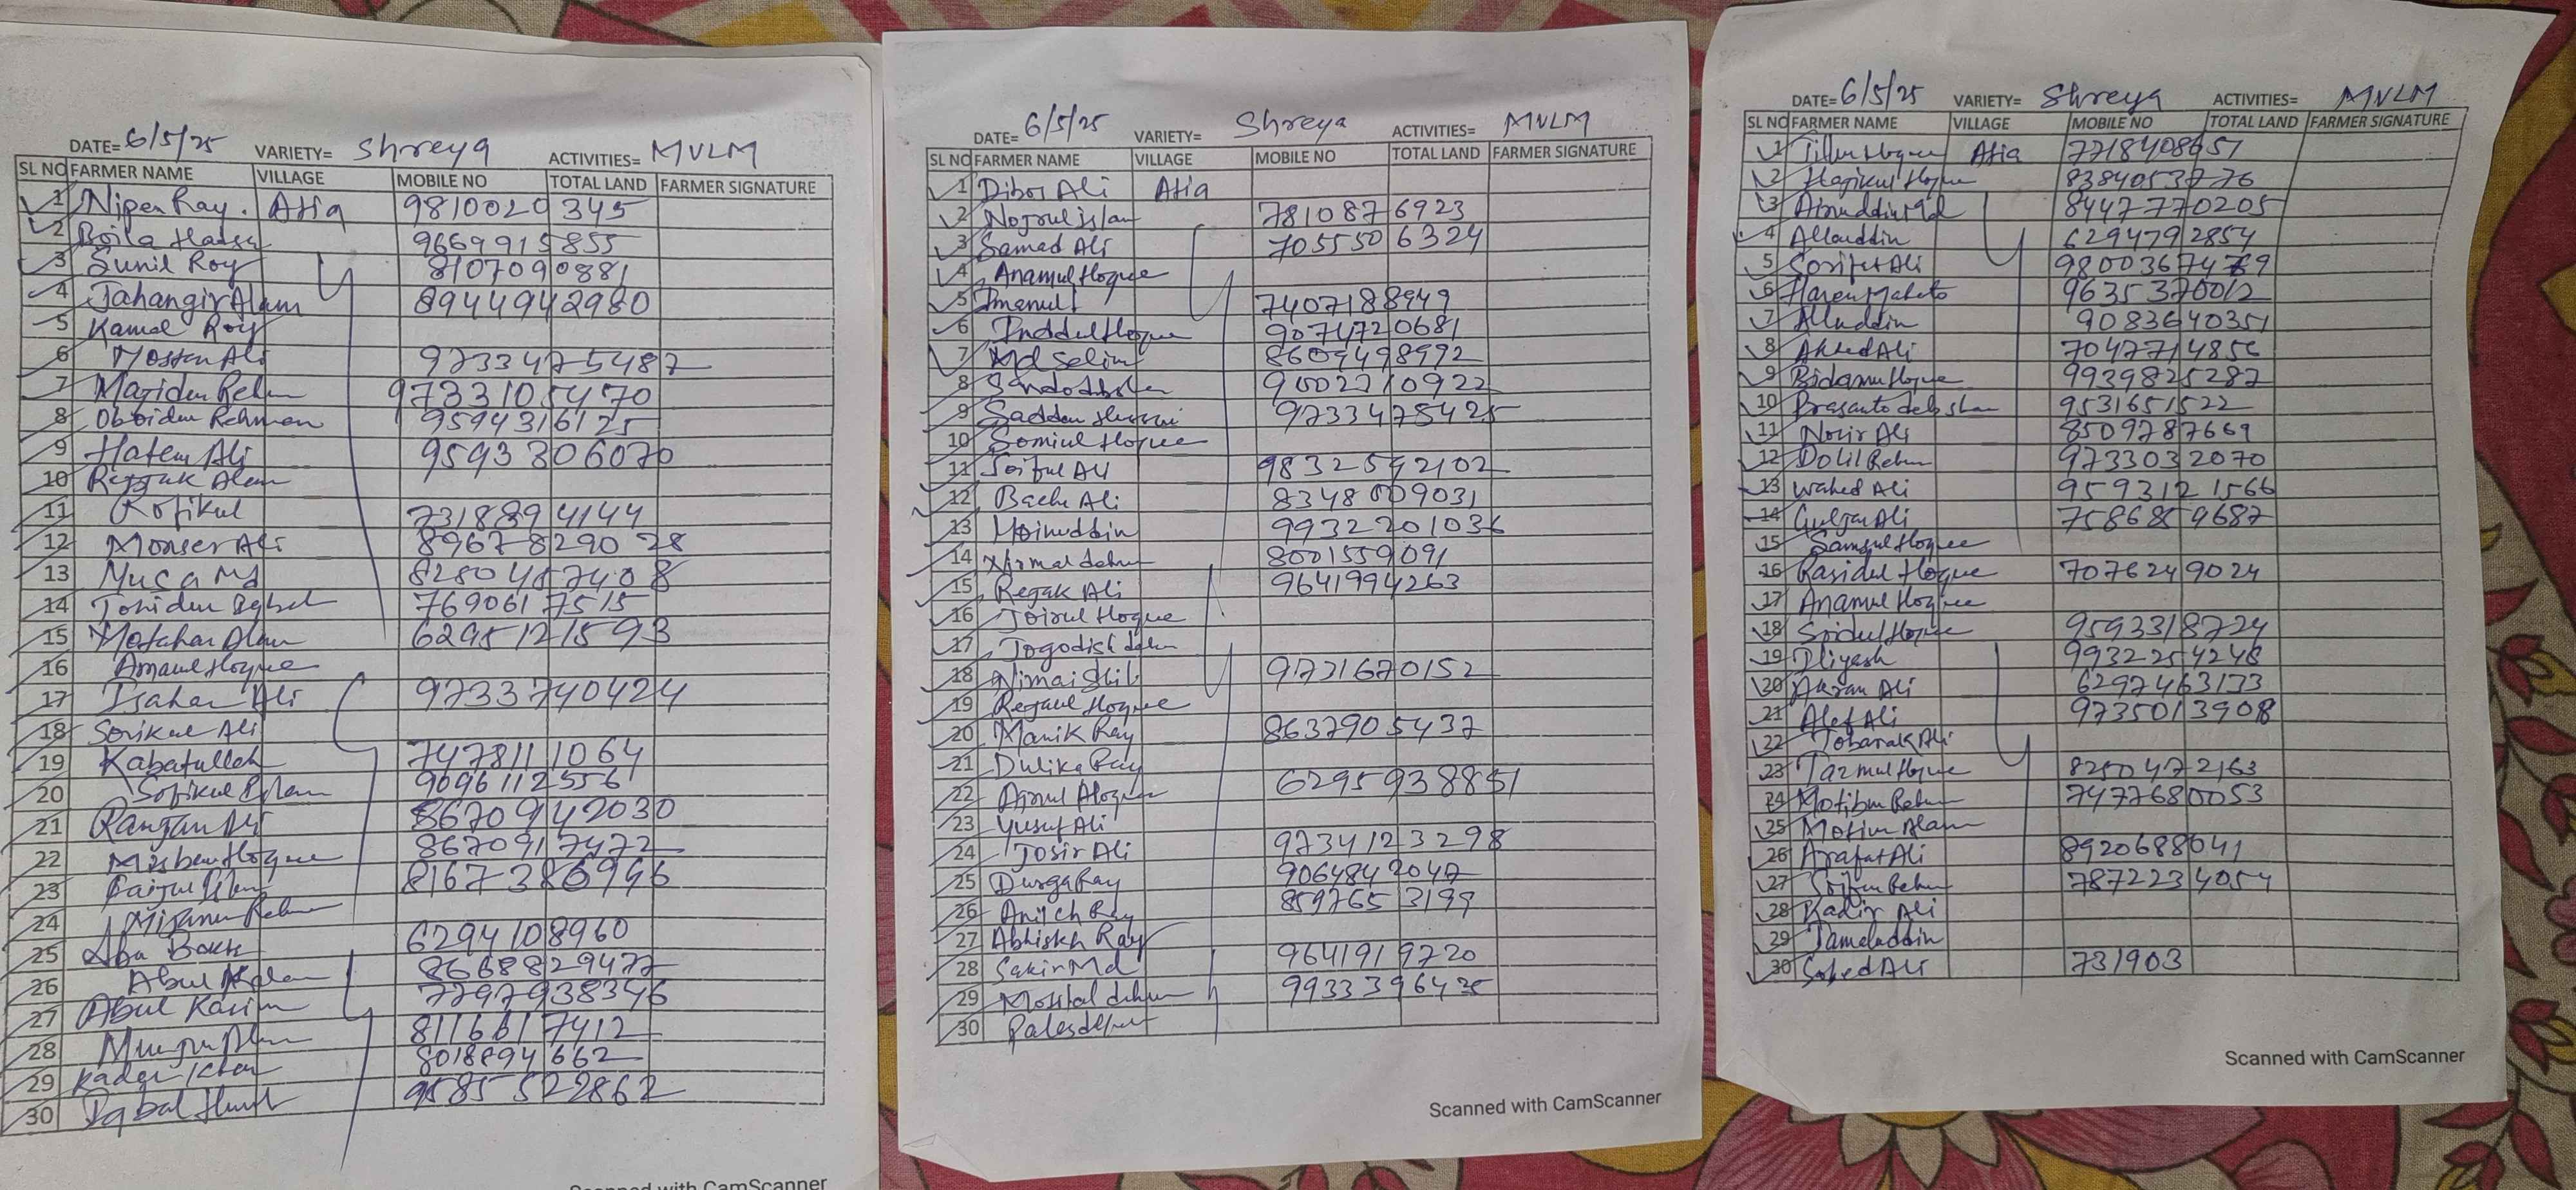 DATE= 6/5/25 VARIETY= Shreya ACTIVITIES= MVLM
SL NO FARMER NAME VILLAGE MOBILE NO TOTAL LAND FARMER SIGNATURE
1 Nipen Ray. Atia 9810020345
2 Boila 9669915855
3 Sunil Roy 8107090881
4 Jahangir Alam 8944942980
5 Kamal Roy
6 Ali 9733475487
7 Mazidur Rehm 9733105470
8 Oboidur Rehman 9594316125
9 Hatem Ali 9593306070
10 Rezzak Alam
11 Rofikul 7318894144
12 Monser Ali 8967829028
13 Musa Md
14 7690617515
15 Motahar Alam 6295121593
16 Hoque
17 Isahar Ali 9733740424
18 Sorikul Ali
19 Kabatullah 7478111064
20 Sofikul Islam 9096112556
21 Ranjan Ali 8670942030
22 Misbaul Hoque 8670917472
23 8167386996
24 Mizanur Rehm
25 Abu Bakk 6294108960
26 Abul Kalam 8668829477
27 Abul Kasim 7797938346
28 8116617412
29 Kader 8018894662
30 Iqbal 9585522862
Scanned with CamScanner
DATE= 6/5/25 VARIETY= Shreya ACTIVITIES= MVLM
SL NO FARMER NAME VILLAGE MOBILE NO TOTAL LAND FARMER SIGNATURE
1 Dibor Ali Atia
2 Nojrul islam 7810876923
3 Samad Ali 7055506324
4 Anamul Hoque
5 Imanul 7407188949
6 Hoque 9074720681
7 Md Selim 8609498992
8 9002710922
9 Saddam 9733475425
10 Somiul Hoque
11 Soiful Ali 9832592102
12 Bachu Ali 8348009031
13 Moinuddin 9932201036
14 Nirmal 8001559091
15 Rejak Ali 9641994263
16 Joirul Hoque
17 Jogodish
18 Nimai Shil 9771670152
19 Rejaul Hoque
20 Manik Ray 8637905437
21 Dulika Ray
22 62959388
23 Yusuf Ali
24 Josir Ali 9734123298
25 Durga Ray 9064842047
26 Ray 8597653199
27 Abhiskh Ray
28 Sakir Md 9641919720
29 99333964
30
Scanned with CamScanner
DATE= 6/5/25 VARIETY= Shreya ACTIVITIES= MVLM
SL NO FARMER NAME VILLAGE MOBILE NO TOTAL LAND FARMER SIGNATURE
1 Hoque Atia 7718408651
2 Hoque 8384053776
3 Ainuddin Md 8447770205
4 Allauddin 6294792854
5 Sorifut Ali
6 Haren Mahato 9635370012
7 Alluddin 9083640351
8 Ahed Ali 7047714856
9 Hoque 9939825287
10 Prasanto 9531651522
11 Nozir Ali 8509787669
12 Dolil Rehm 9733032070
13 Wahed Ali 9593121566
14 Guljar Ali 7586859687
15 Samsul Hoque
16 Rasidul Hoque 7076249024
17 Anamul Hoque
18 Hoque 9593318724
19 Iliyash 9932254248
20 Akran Ali 6297463133
21 Alef Ali 9735013908
22 Tobarak Ali
23 Tazmul Hoque 8250472163
24 Motibur Rehm 7477680053
25 Motiur Alam
26 Arafat Ali 8920688041
27 Rehm 7872234054
28 Kadir Ali
29 Jamaluddin
30 Sohed Ali 731903
Scanned with CamScanner